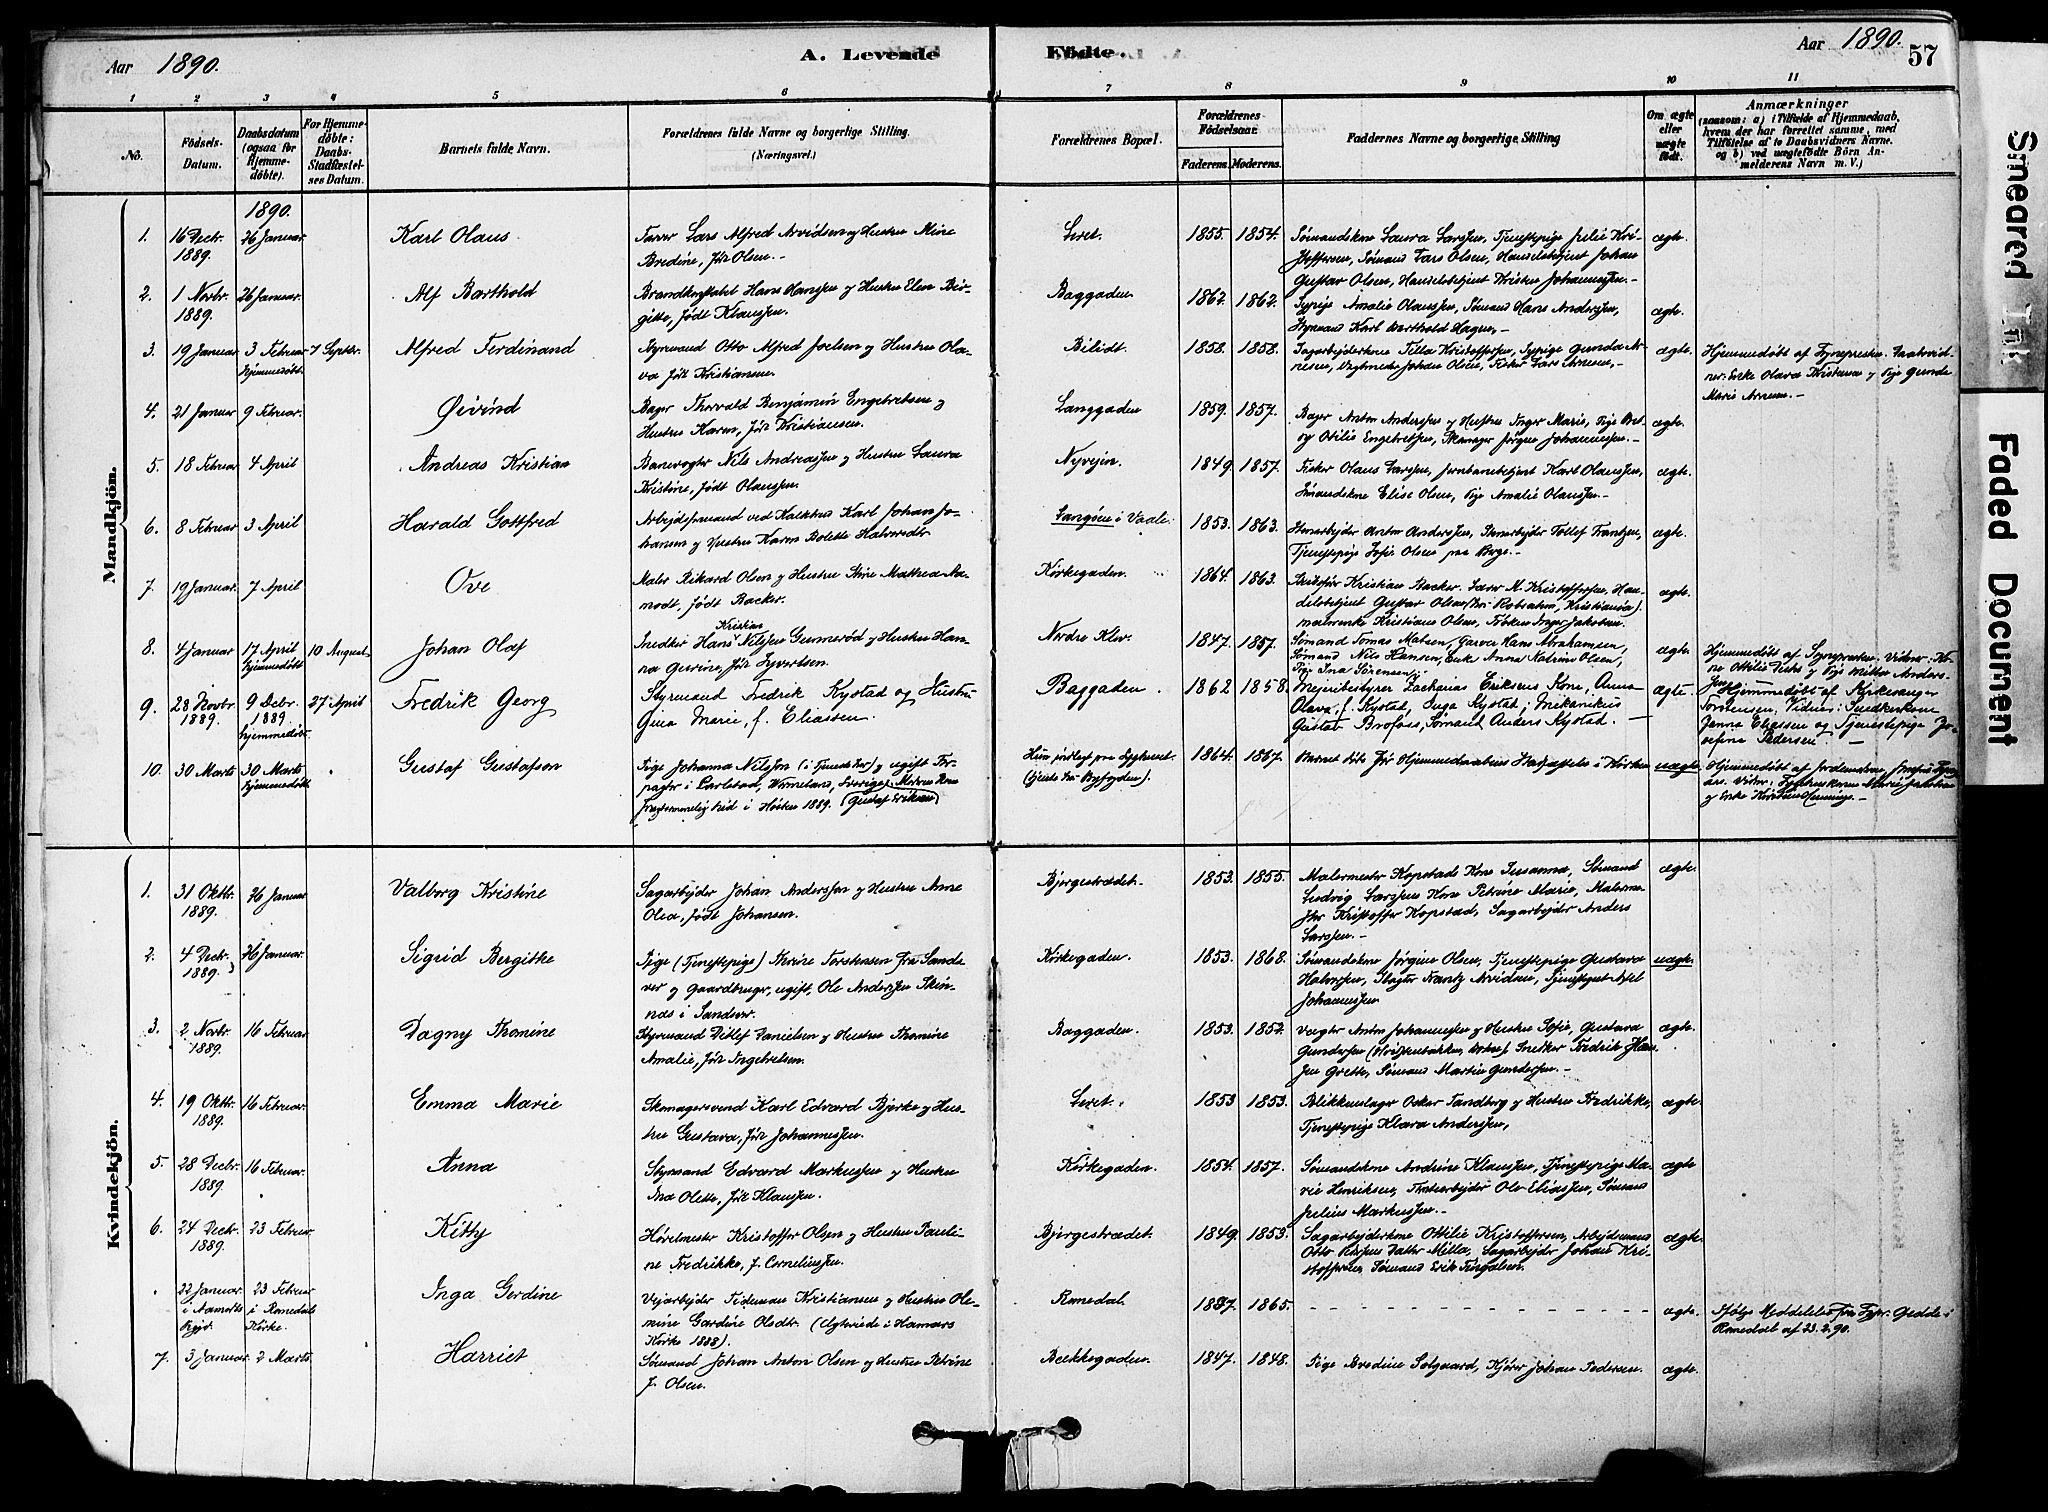 Aar 1890.
A. Levende
Födte.
Aar 1890.
57
1 2 3 4 5 6 7 8 9 10 11
Nö.
Födsels-
Datum.
Daabsdatum
(ogsaa for
Hjemme-
döbte).
For Hjemme-
döbte:
Daabs-
Stadfæstel-
ses Datum.
Barnets fulde Navn.
Forældrenes fulde Navne og borgerlige Stilling.
(Næringsvei.)
Forældrenes Bopæl.
Forældrenes
Födselsaar.
Faderens. Moderens.
Faddernes Navne og borgerlige Stilling
Om ægte
eller
uægte
födt.
Anmærkninger
(saasom: a) i Tilfælde af Hjemmedaab,
hvem der har forrettet samme, med
Tilföielse af to Daabsvidners Navne.
og b) ved uægtefödte Börn An-
melderens Navn m.V.)
Mandkjön.
1890.
1. 16 Decbr. 1889. 26 Januar.
Karl Olaus
Farver Lars Alfred Arvidsen og Hustru Mine
Bredine, født Olsen.
Leret. 1855. 1854.
Sømandskone Laura Larssen, Tjenestepige Julie Kri-
stoffersen, Sømand Lars Olsen, Handelsbetjent Johan
Gustav Olsen, Handelsbetjent Kristen Johannessen.
ægte.
2. 1 Novbr. 1889. 26 Januar.
Alf Barthold
Brandkonstabel Hans Hanssen og Hustru Elen Bir-
gitte, født Klaussen.
Baggaden. 1862. 1862.
Sypige Amalie Olaussen, Sømand Hans Anderssen,
Styrmand Karl Barthold Hagen.
ægte.
3. 19 Januar. 3 Februar hjemmedøbt 7 Septbr.
Alfred Ferdinand
Styrmand Otto Alfred Joelsen og Hustru Ola-
va født Kristiansen.
Bilidt. 1858. 1858.
Sagarbejderkone Tilla Kristoffersen, Sypige Gunda Ar-
nesen, Johan Olsen, Fisker Lars Arnesen.
ægte.
Hjemmedøbt af Sognepresten. Daabsvid-
ner: Enke Olava Kristiansen og Pige Gunda
Maris Arnesen.
4. 21 Januar 9 Februar.
Øivind
Bager Thorvald Benjamin Engebretsen og
Hustru Karen, født Kristiansen.
Langgaden. 1859. 1857.
Bager Anton Anderssen og Hustru Inger Marie, Pige
Otilie Engebretsen, Skomager Jørgen Johannessen.
ægte.
5. 18 Februar 4 April
Andreas Kristian
Banevogter Nils Andreassen og Hustru Laura
Kristine, født Olaussen.
Nyvejen. 1849. 1857.
Fisker Olaus Larssen, Jernbanebetjent Karl Olaussen,
Sømandskone Elise Olsen, Pige Amalie Olaussen.
ægte.
6. 8 Februar 3 April.
Harald Gottfred
Arbejdsformand ved Kalkbrud Karl Johan Jo-
hansen og Hustru Karen Bolette Halvorsdtr
Langøen i Vaale. 1853. 1863.
Stenarbejder Anton Anderssen, Stenarbejder Tollef Frantzen,
Tjenestepige Sofie Olsen paa Berge.
ægte.
7. 19 Januar. 7 April
Ove
Maler Rikard Olsen og Hustru Stine Mathea
født Backer.
Kirkegaden. 1864. 1863.
Kristian Backer, Lærer M. Kristoffersen, Han-
delsbetjent Gustav Olsen
Kristiane Olsen, Frøken Inga Jakobsen.
ægte.
8. 4 Januar 17 April hjemmedøbt 10 August
Johan Olaf
Snedker Hans Kristian Nilssen Gunnerød og Hustru Han-
na Gurine, født Syvertsen.
Nordre Klev. 1847. 1857.
Sømand Tomas Matsen, Garver Hans Abrahamsen,
Sømand Nils Hansen, Enke Anna Katrine Olsen,
Pige Ina Sørensen.
ægte
Hjemmedøbt af Sognepresten. Vidner:
Ottilie og Pige Milla Anders-
sen
9. 28 Novbr. 1889. 9 Decbr. 1889. hjemmedøbt 27 April
Fredrik Georg
Styrmand Fredrik Kystad og Hustru
Gina Marie, f. Eliassen.
Baggaden. 1862 1858.
Mejeribestyrer Zacharias Eriksens Kone, Anna
Olava, f. Kystad, Inga Kystad; Mekanikus
Gustav Brofoss, Sømand Anders Kystad.
ægte.
Hjemmedøbt af Kirkesanger
Torstensen. Vidner: Snedkerkone
Janna Eliassen og Tjenestepige Jo-
sefina Pedersen.
10. 30 Marts 30 Marts hjemmedøbt
Gustaf Gustafson
Pige Johanna Nilsson og ugift For-
pagter i Carlstad, Wermeland, Sverige.
i Høsten 1889. (Gustaf Erikson)
1864. 1867.
Barnet døde før Hjemmedaabens Stadfæstelse i Kirken
uægte.
Hjemmedøbt af Jordemoderen
Kvindekjön.
1. 31 Oktbr. 1889. 26 Januar.
Valborg Kristine
Sagarbejder Johan Anderssen og Hustru Anne
Olea, født Johansen.
Bjergestrædet. 1853. 1855.
Malermester Kopstads Kone Susanna, Sømand
Ludvig Larssens Kone Petrine Marie, Malerme-
ster Kristoffer Kopstad, Sagarbejder Anders
Larssen.
ægte.
2. 4 Decbr. 1889. 26 Januar.
Sigrid Bergitte
Pige (Tjenestepige) Thrine Torstensen fra Sands-
ver og Gaardbruger, ugift, Ole Anderssen Skin-
nes i Sandsver.
Kirkegaden. 1853. 1868.
Sømandskone Jørgine Olsen, Tjenestepige Gustava
Halvorsen, Slagter Frantz Arvidsen, Tjenestegut Axel
Johannessen
uægte.
3. 2 Novbr. 1889. 16 Februar
Dagny Thomine
Styrmand Ditlef Danielsen og Hustru Thomine
Amalie, født Ingebretsen.
Baggaden. 1853. 1852.
Vægter Anton Johannessen og Hustru Sofie, Gustava
Gundersen Snedker Fredrik Han-
sen Grette, Sømand Martin Gundersen.
ægte.
4. 19 Oktbr. 1889. 16 Februar.
Emma Marie
Skomagersvend Karl Edvard Bjerke og Hus-
tru Gustava, født Johannessen.
Leret. 1853 1853.
Blikkenslager Oskar Sandberg og Hustru Fredrikke,
Tjenestepige Klara Anderssen,
ægte.
5. 28 Decbr. 1889. 16 Februar.
Anna
Styrmand Edvard Markussen og Hustru
Ina Olette, født Klaussen.
Kirkegaden. 1854. 1857.
Sømandskone Andrine Klaussen, Tjenestepige Ma-
rie Henriksen, Ole Eliassen, Sømand
Julius Markussen.
ægte
6. 24 Decbr. 1889. 23 Februar.
Kitty
Høvelmester Kristoffer Olsen og Hustru Pauli-
ne Fredrikke, f. Corneliussen.
Bjergestrædet. 1849. 1853.
Sagarbejderkone Ottilie Kristoffersen, Arbejdsmand
Otto Datter Milla, Sagarbejder Johan Kri-
stoffersen, Sømand Erik Tingulsen.
ægte.
22 Januar i Aamodts 23 Februar i Romedals Kirke.
Inga Gerdine
Vejarbejder Tideman Kristiansen og Hustru Ole-
mine Gardine Olsdtr. (Ægteviede i Hamars
Kirke 1888).
Romedal. 1857. 1865.
ægte.
Ifølge Meddelelse fra Sogpr. Gedde i
Romedal af 23.2.90.
7. 3 Januar 2 Marts
Harriet
Sømand Johan Anton Olsen og Hustru Petrine
f. Olsen.
Bækkegaden. 1847. 1848.
Pige Bredine Solgaard, Kjører Johan Pedersen.
ægte.
Smeared Ink
Faded Document